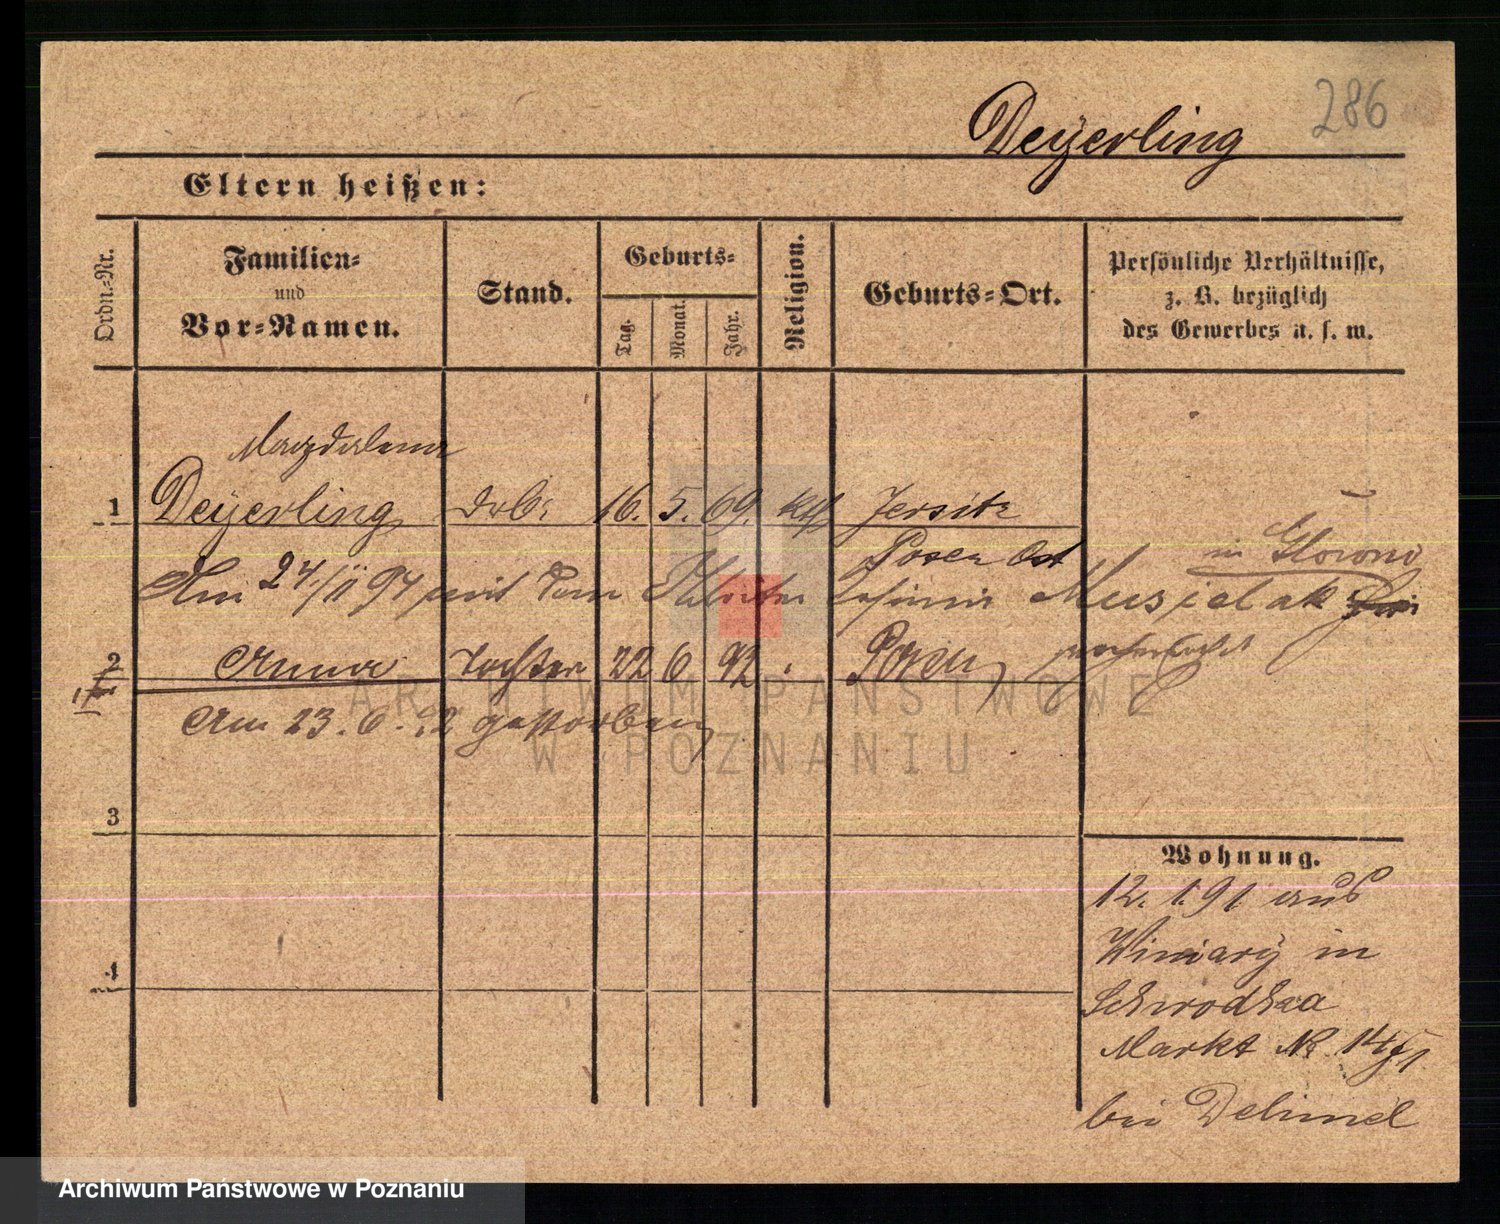 286
Deyerling
Eltern heißen:
Ordn.-Nr.
Familien-
und
Vor-Namen.
Stand.
Geburts-
Tag.
Monat.
Jahr.
Religion.
Geburts-Ort.
Persönliche Verhältnisse,
z. B. bezüglich
des Gewerbes u. s. w.
Magdalena
1 Deyerling 16. 5. 69. kth Jersitz
Posen Ost in Glowno
Am 24/11 94 mit dem Casimir Musielak
2 Anna Tochter 22 6 92 Posen
Am 23. 6. 92 gestorben
3
4
Wohnung.
12. 1. 91 aus
Winiary in
Schrodkaa
Markt No 14
bei
ARCHIWUM PAŃSTWOWE
W POZNANIU
Archiwum Państwowe w Poznaniu